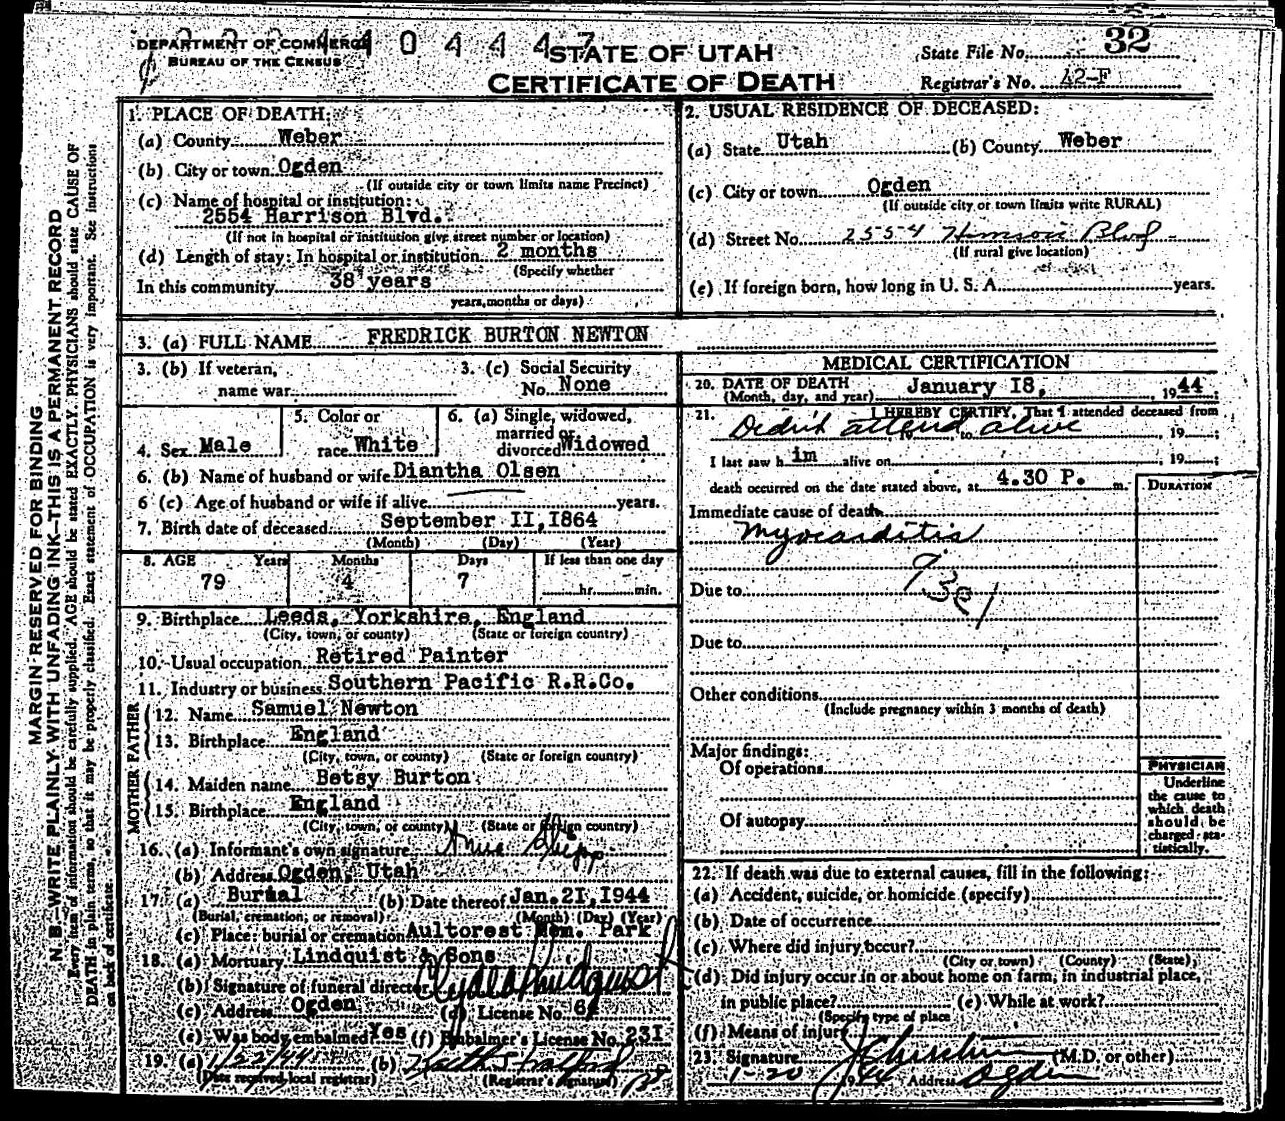 DEPARTMENT OF COMMERCE
BUREAU OF THE CENSUS
STATE OF UTAH
CERTIFICATE OF DEATH
State File No. 32
Registrar's No. 42-F
MARGIN RESERVED FOR BINDING
N. B.—WRITE PLAINLY WITH UNFADING INK—THIS IS A PERMANENT RECORD
Every item of information should be carefully supplied. AGE should be stated EXACTLY. PHYSICIANS should state CAUSE OF
DEATH in plain terms, so that it may be properly classified. Exact statement of OCCUPATION is very important. See instructions
on back of certificate.
1. PLACE OF DEATH:
(a) County Weber
(b) City or town Ogden
(If outside city or town limits name Precinct)
(c) Name of hospital or institution:
2554 Harrison Blvd.
(If not in hospital or institution give street number or location)
(d) Length of stay: In hospital or institution 2 months
(Specify whether
In this community 38 years
years, months or days)
2. USUAL RESIDENCE OF DECEASED:
(a) State Utah (b) County Weber
(c) City or town Ogden
(If outside city or town limits write RURAL)
(d) Street No. 2554 Harrison Blvd
(If rural give location)
(e) If foreign born, how long in U. S. A. years.
3. (a) FULL NAME FREDRICK BURTON NEWTON
3. (b) If veteran,
name war
3. (c) Social Security
No. None
4. Sex Male
5. Color or
race White
6. (a) Single, widowed,
married or
divorced Widowed
6. (b) Name of husband or wife Diantha Olsen
6 (c) Age of husband or wife if alive years.
7. Birth date of deceased September II, 1864
(Month) (Day) (Year)
8. AGE Years Months Days If less than one day
79 4 7 hr. min.
9. Birthplace Leeds, Yorkshire, England
(City, town, or county) (State or foreign country)
10. Usual occupation Retired Painter
11. Industry or business Southern Pacific R.R.Co.
MOTHER FATHER
12. Name Samuel Newton
13. Birthplace England
(City, town, or county) (State or foreign country)
14. Maiden name Betsy Burton
15. Birthplace England
(City, town, or county) (State or foreign country)
16. (a) Informant's own signature
(b) Address Ogden, Utah
17. (a) Burial (b) Date thereof Jan. 21, 1944
(Burial, cremation, or removal) (Month) (Day) (Year)
(c) Place: burial or cremation Aultorest Mem. Park
18. (a) Mortuary Lindquist & Sons
(b) Signature of funeral director Clyde Lindquist
(c) Address Ogden (d) License No. 6
(e) Was body embalmed Yes (f) Embalmer's License No. 231
19. (a) 1/22/44 (b)
(Date received local registrar) (Registrar's signature)
MEDICAL CERTIFICATION
20. DATE OF DEATH January 18, 1944
(Month, day, and year)
21. I HEREBY CERTIFY, That I attended deceased from
Didn't attend alive, 19 to , 19 ;
I last saw h im alive on , 19 ;
death occurred on the date stated above, at 4.30 P. m.
DURATION
Immediate cause of death
Myocarditis
93e1
Due to
Due to
Other conditions
(Include pregnancy within 3 months of death)
Major findings:
Of operations
Of autopsy
PHYSICIAN
Underline
the cause to
which death
should be
charged sta-
tistically.
22. If death was due to external causes, fill in the following:
(a) Accident, suicide, or homicide (specify)
(b) Date of occurrence
(c) Where did injury occur?
(City or town) (County) (State)
(d) Did injury occur in or about home on farm, in industrial place,
in public place? (e) While at work?
(Specify type of place
(f) Means of injury
23. Signature (M.D. or other)
1-20 1944 Address Ogden